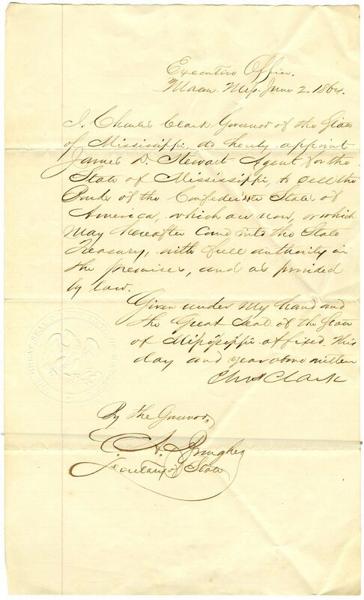 Executive Office,
Macon Miss, June 2. 1864.
I. Charles Clark Governor of the State
of Mississippi, do hereby appoint
James D. Stewart Agent for the
State of Mississippi, to sell the
Bonds of the Confederate States of
America, which are now, or which
May hereafter come into the State
Treasury, with full authority in
the premises, and as provided
by law.
Given under my hand and
the Great Seal of the State
of Mississippi affixed, this
day and year above written
Chas Clark
By the Governor,
C. A. Brougher
Secretary of State